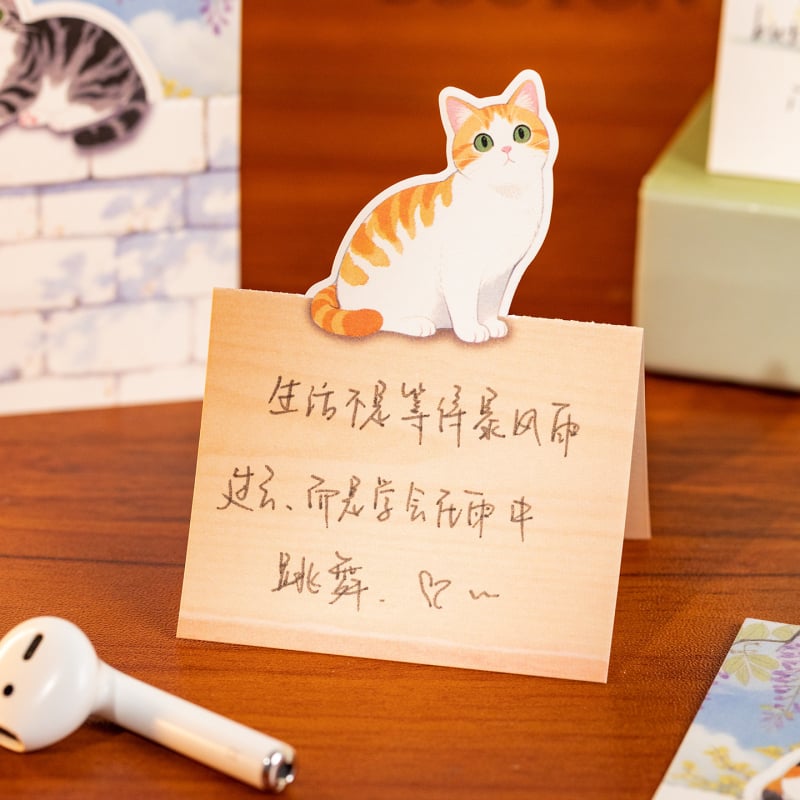 生活不是等待暴风雨
过去、而是学会在雨中
跳舞. ♡ ~